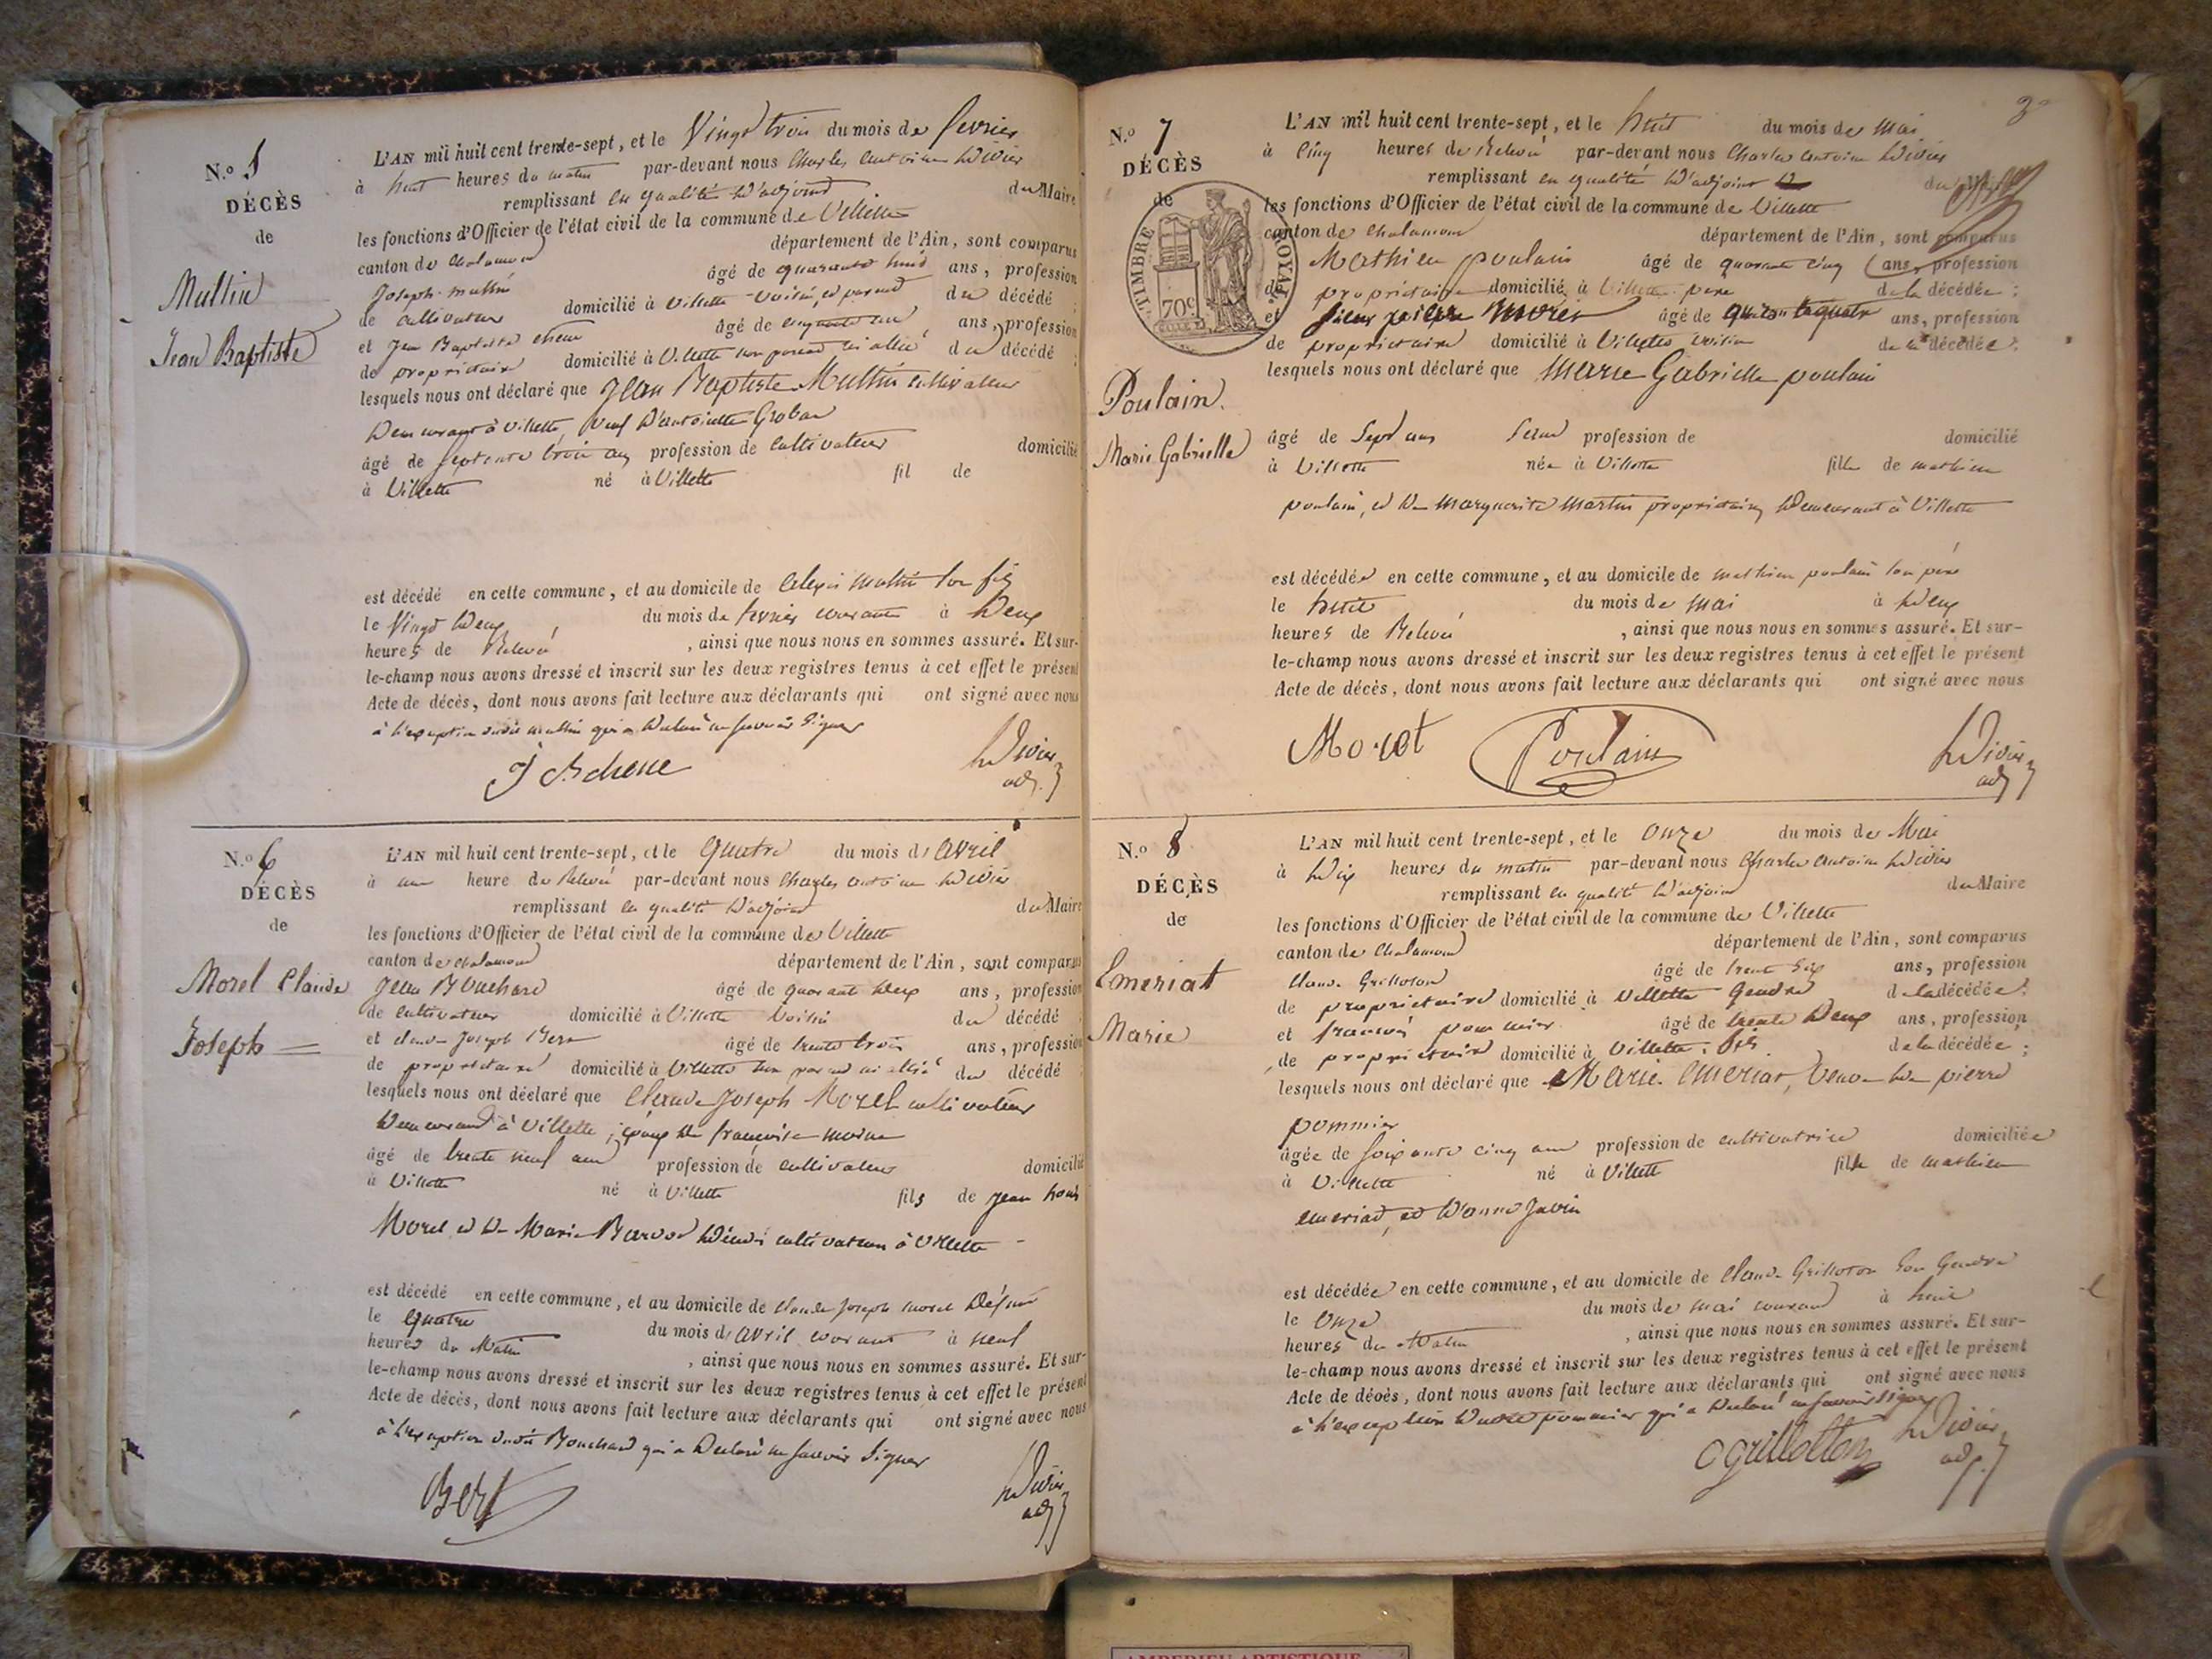 N.º 5
DÉCÈS
de
Multin
Jean Baptiste
L'AN mil huit cent trente-sept, et le Vingt trois du mois de fevrier
à huit heures du matin par-devant nous Charles antoine Didier
remplissant en qualité D'adjoind du Maire
les fonctions d'Officier de l'état civil de la commune de Villette
canton de Chalamond département de l'Ain, sont comparus
Joseph multin âgé de quarante huit ans, profession
de cultivateur domicilié à Villette voisin, et parend du décédé ;
et Jean Baptiste chene âgé de cinquante un ans, profession
de propriétaire domicilié à Villette non parend ni allié du décédé ;
lesquels nous ont déclaré que Jean Baptiste Multin cultivateur
Demeurant à Villette, veuf D'antoinette Groban
âgé de septente trois ans profession de cultivateur domicilié
à Villette né à Villette fil de
est décédé en cette commune, et au domicile de multin son fils
le Vingt Deux du mois de fevrier courant à Deux
heures de Relevé , ainsi que nous nous en sommes assuré. Et sur-
le-champ nous avons dressé et inscrit sur les deux registres tenus à cet effet le présent
Acte de décès, dont nous avons fait lecture aux déclarants qui ont signé avec nous
à l'exception dudit multin qui a Déclaré ne savoir signer
J B chene Didier
adj.
N.º 6
DÉCÈS
de
Morel Claude
Joseph
L'AN mil huit cent trente-sept, et le quatre du mois d'avril
à une heure de Relevé par-devant nous Charles antoine Didier
remplissant en qualité D'adjoind du Maire
les fonctions d'Officier de l'état civil de la commune de Villette
canton de chalamond département de l'Ain, sont comparus
Jean Bouchard âgé de quarante Deux ans, profession
de cultivateur domicilié à Villette voisin du décédé
et claude Joseph Bert âgé de trente trois ans, profession
de propriétaire domicilié à Villette non parend ni allié du décédé ;
lesquels nous ont déclaré que Claude Joseph Morel cultivateur
Demeurand à Villette, époux De françoise moine
âgé de trente neuf ans profession de cultivateur domicilié
à Villette né à Villette fils de Jean Louis
Morel et De Marie cultivateurs à Villette
est décédé en cette commune, et au domicile de claude joseph morel Défunt
le quatre du mois d'avril courant à neuf
heures du Matin , ainsi que nous nous en sommes assuré. Et sur-
le-champ nous avons dressé et inscrit sur les deux registres tenus à cet effet le présent
Acte de décès, dont nous avons fait lecture aux déclarants qui ont signé avec nous
à l'exception dudit Bouchard qui a Déclaré ne savoir signer
Bert Didier
adj
N.º 7
DÉCÈS
de
TIMBRE ROYAL
70c
Poulain.
Marie Gabrielle
L'AN mil huit cent trente-sept, et le huit du mois de Mai
à cinq heures de Relevé par-devant nous Charles antoine Didier
remplissant en qualité D'adjoint du Maire
les fonctions d'Officier de l'état civil de la commune de Villette
canton de Chalamond département de l'Ain, sont comparus
Mathieu poulain âgé de quarante cinq ans, profession
de propriétaire domicilié à Villette pere de la décédée ;
et âgé de quarantequatre ans, profession
de propriétaire domicilié à Villette voisin de la décédée ;
lesquels nous ont déclaré que Marie Gabrielle poulain
âgé de Sept ans profession de domicilié
à Villette née à Villette fille de mathieu
poulain, et De marguerite martin propriétaires Demeurant à Villette
est décédée en cette commune, et au domicile de mathieu poulain son père
le huit du mois de mai à Deux
heures de Relevé , ainsi que nous nous en sommes assuré. Et sur-
le-champ nous avons dressé et inscrit sur les deux registres tenus à cet effet le présent
Acte de décès, dont nous avons fait lecture aux déclarants qui ont signé avec nous
Poulain Didier
adj
N.º 8
DÉCÈS
de
Emeriat
Marie
L'AN mil huit cent trente-sept, et le Onze du mois de Mai
à Dix heures du matin par-devant nous Charles antoine Didier
remplissant en qualité D'adjoind du Maire
les fonctions d'Officier de l'état civil de la commune de Villette
canton de Chalamond département de l'Ain, sont comparus
Claude Grilloton âgé de trente six ans, profession
de propriétaire domicilié à Villette Gendre de la décédée ;
et françois pommier âgé de trente Deux ans, profession
de propriétaire domicilié à Villette fils de la décédée ;
lesquels nous ont déclaré que Marie Emeriat, Veuve De pierre
pommier
âgée de soixante cinq ans profession de cultivatrice domiciliée
à Villette né à Villette fille de mathieu
emeriat, et D'anne
est décédée en cette commune, et au domicile de Claude Grilloton son Gendre
le Onze du mois de mai courant à huit
heures du Matin , ainsi que nous nous en sommes assuré. Et sur-
le-champ nous avons dressé et inscrit sur les deux registres tenus à cet effet le présent
Acte de décès, dont nous avons fait lecture aux déclarants qui ont signé avec nous
à l'exception Dudit pommier qui a Déclaré ne savoir signer
C grillotton Didier
adj.
AMBERIEU ARTISTIQUE